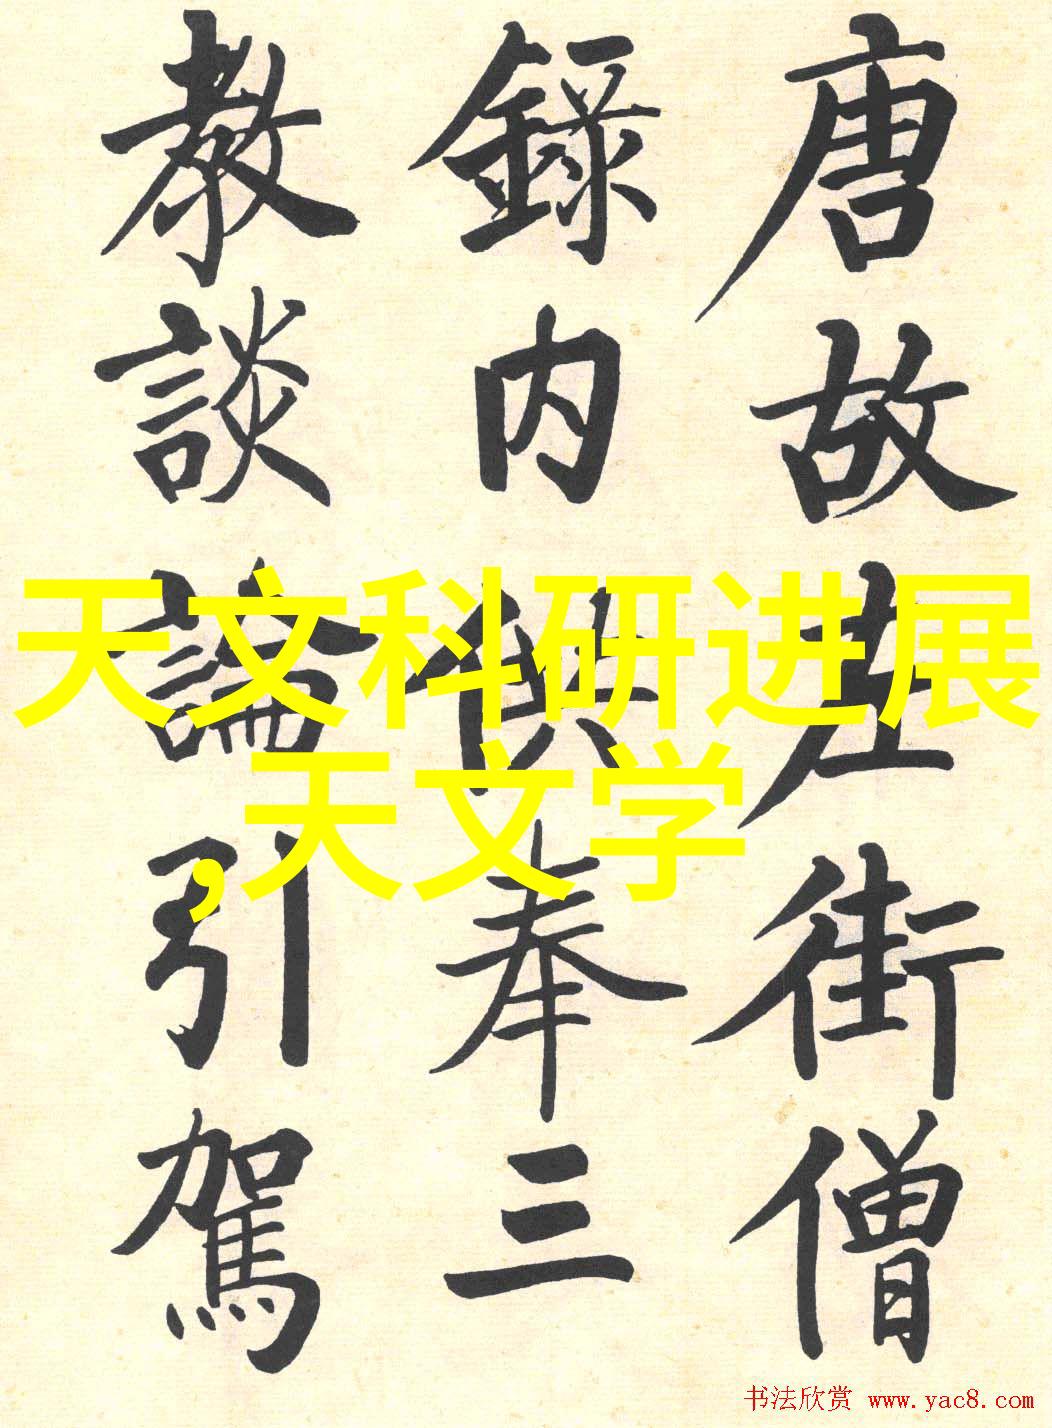 唐故左街僧
錄内供奉三
教談論引駕
天文科研进展
,天文学
书法欣赏 www.yac8.com